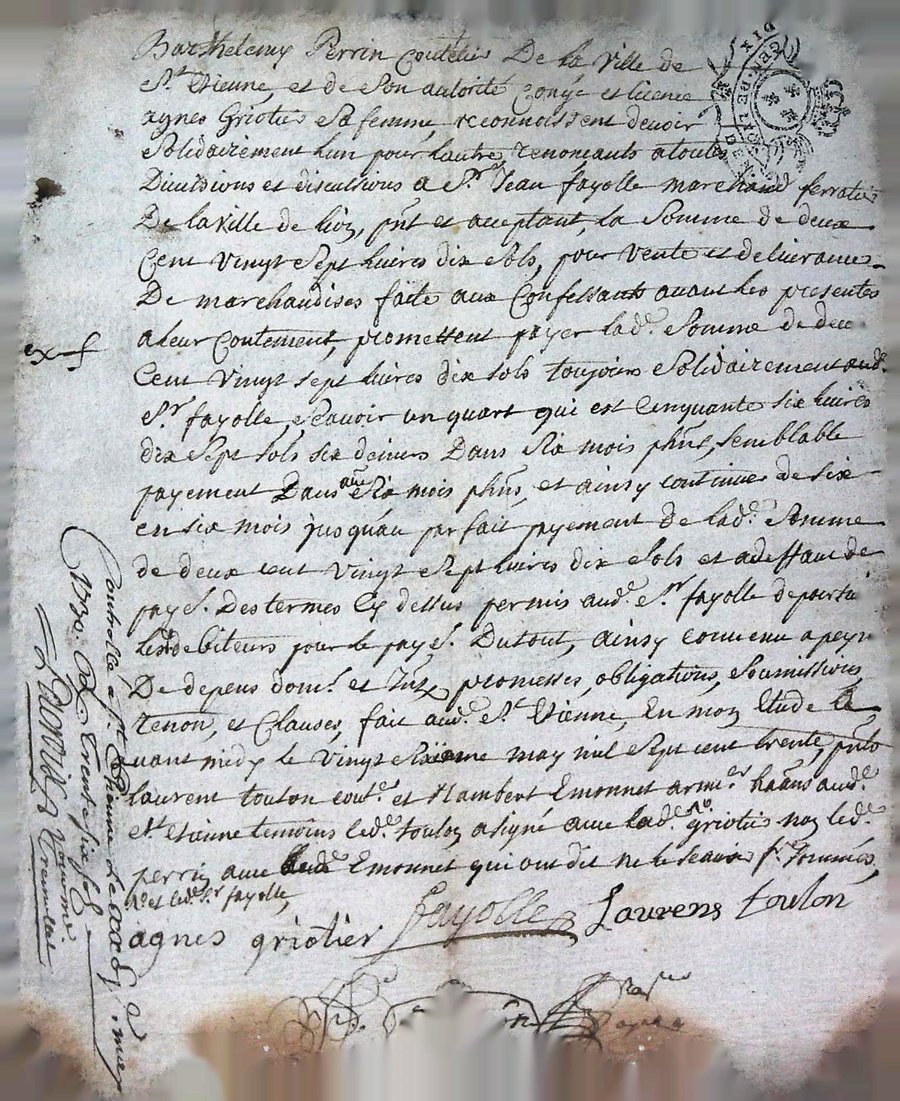 Barthelemy Perrin Coutelier De la ville de
St. Etienne, et de Son autorité Congé et licence
agnes Griotier Sa femme, reconnoissent devoir
Solidairement lun pour lautre, renonceants a toutes
Divisions et discutions a Sr. Jean fayolle marchand ferratier
De la ville de lion, pnt et acceptant, la Somme de deux
Cent vingt Sept livres dix Sols, pour vente et delivrance
De marchandises faite aux Confessants avant les presentes
a leur Contement, promettent payer lade. Somme de deux
Cent vingt sept livres dix sols toujours Solidairement aud.
Sr. fayolle, Scavoir un quart qui est Cinquante six livres
dix Sept sols six deniers Dans Six mois plns, semblable
payement Dans au Six mois plns, et ainsy continuer de six
en six mois jusqu'au parfait payement de lade. Somme
de deux cent vingt Sept livres dix Sols et a deffaut de
paye. Des termes Cy dessus permis aude. Sr. fayolle de poursui
les debiteurs pour le paye. Du tout, ainsy convenu a peyne
De depens dom. et promesses, obligations, Soumissions,
renon, et Clauses, fait aude. St. Etienne, En mon Etude
avant midy le vingt Sixieme may mil Sept cent trente, pnts
laurent toulon cout. et Lambert Emonnet armr. hants aude.
St. Etienne temoins lede. toulon a signé avec lade. griotier non lede.
perrin avec lede Emonnet qui ont dit ne le scavoir Sr. Sommés,
et lede. Sr fayolle,
agnes griotier fayolle Laurens toulon
Controllé a St. Etienne le may
1730. Rd. trente six
ex f
DIX DEN. DE